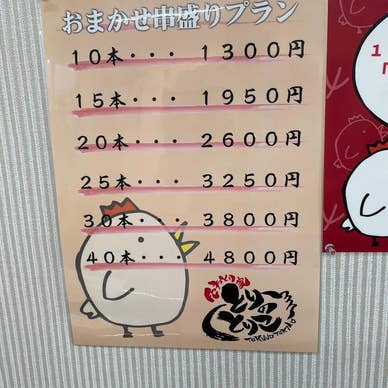 おまかせ串盛りプラン
10本・・・1300円
15本・・・1950円
20本・・・2600円
25本・・・3250円
30本・・・3800円
40本・・・4800円
とりのとりこ
TORINOTORIKO